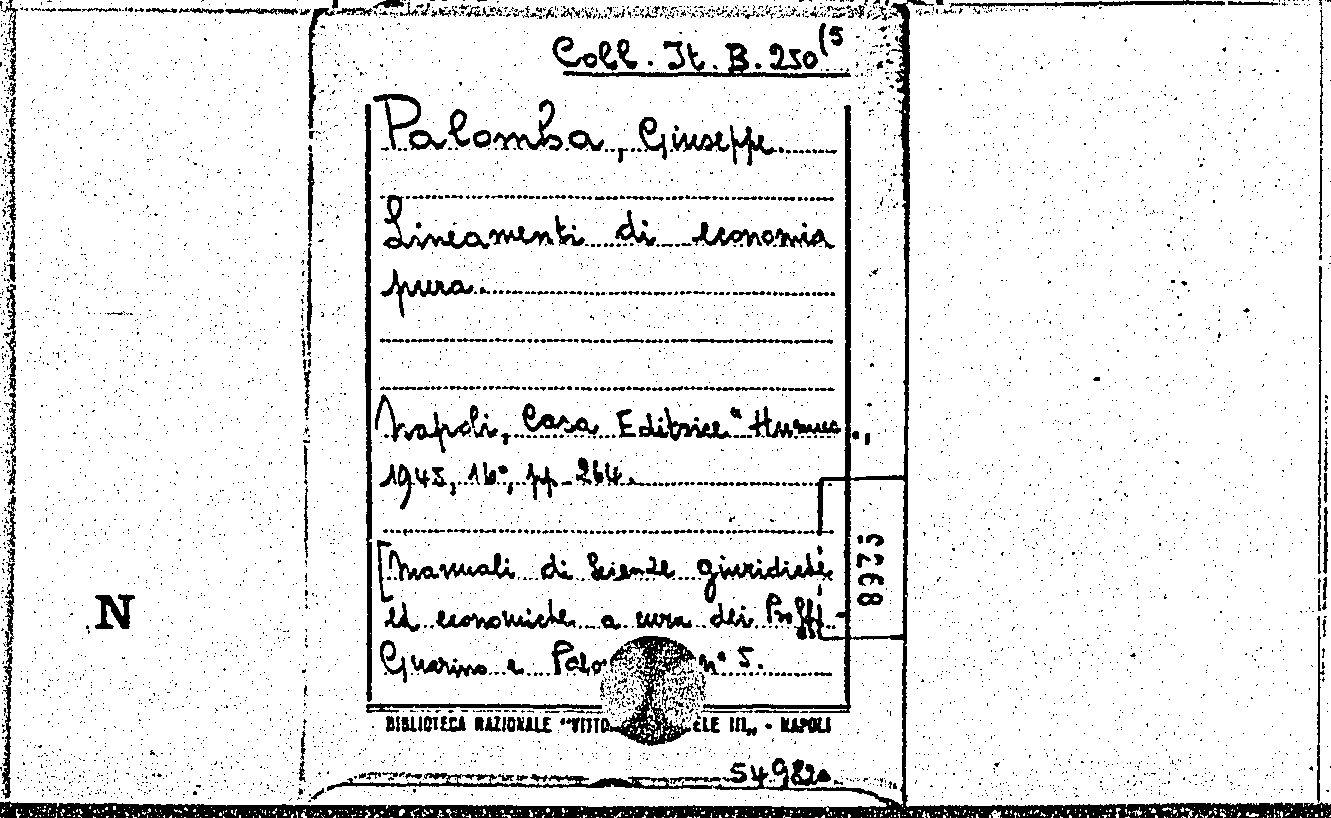 Coll. It. B. 250(5
Palomba, Giuseppe.
Lineamenti di economia
pura.
Napoli, Casa Editrice "Humus.,
1945, 16°, pp. 264.
[Manuali di Scienze giuridiche
ed economiche a cura dei Proff.
8975
N
Guarino e Palo n° 5.
BIBLIOTECA NAZIONALE "VITTO ELE III„ - NAPOLI